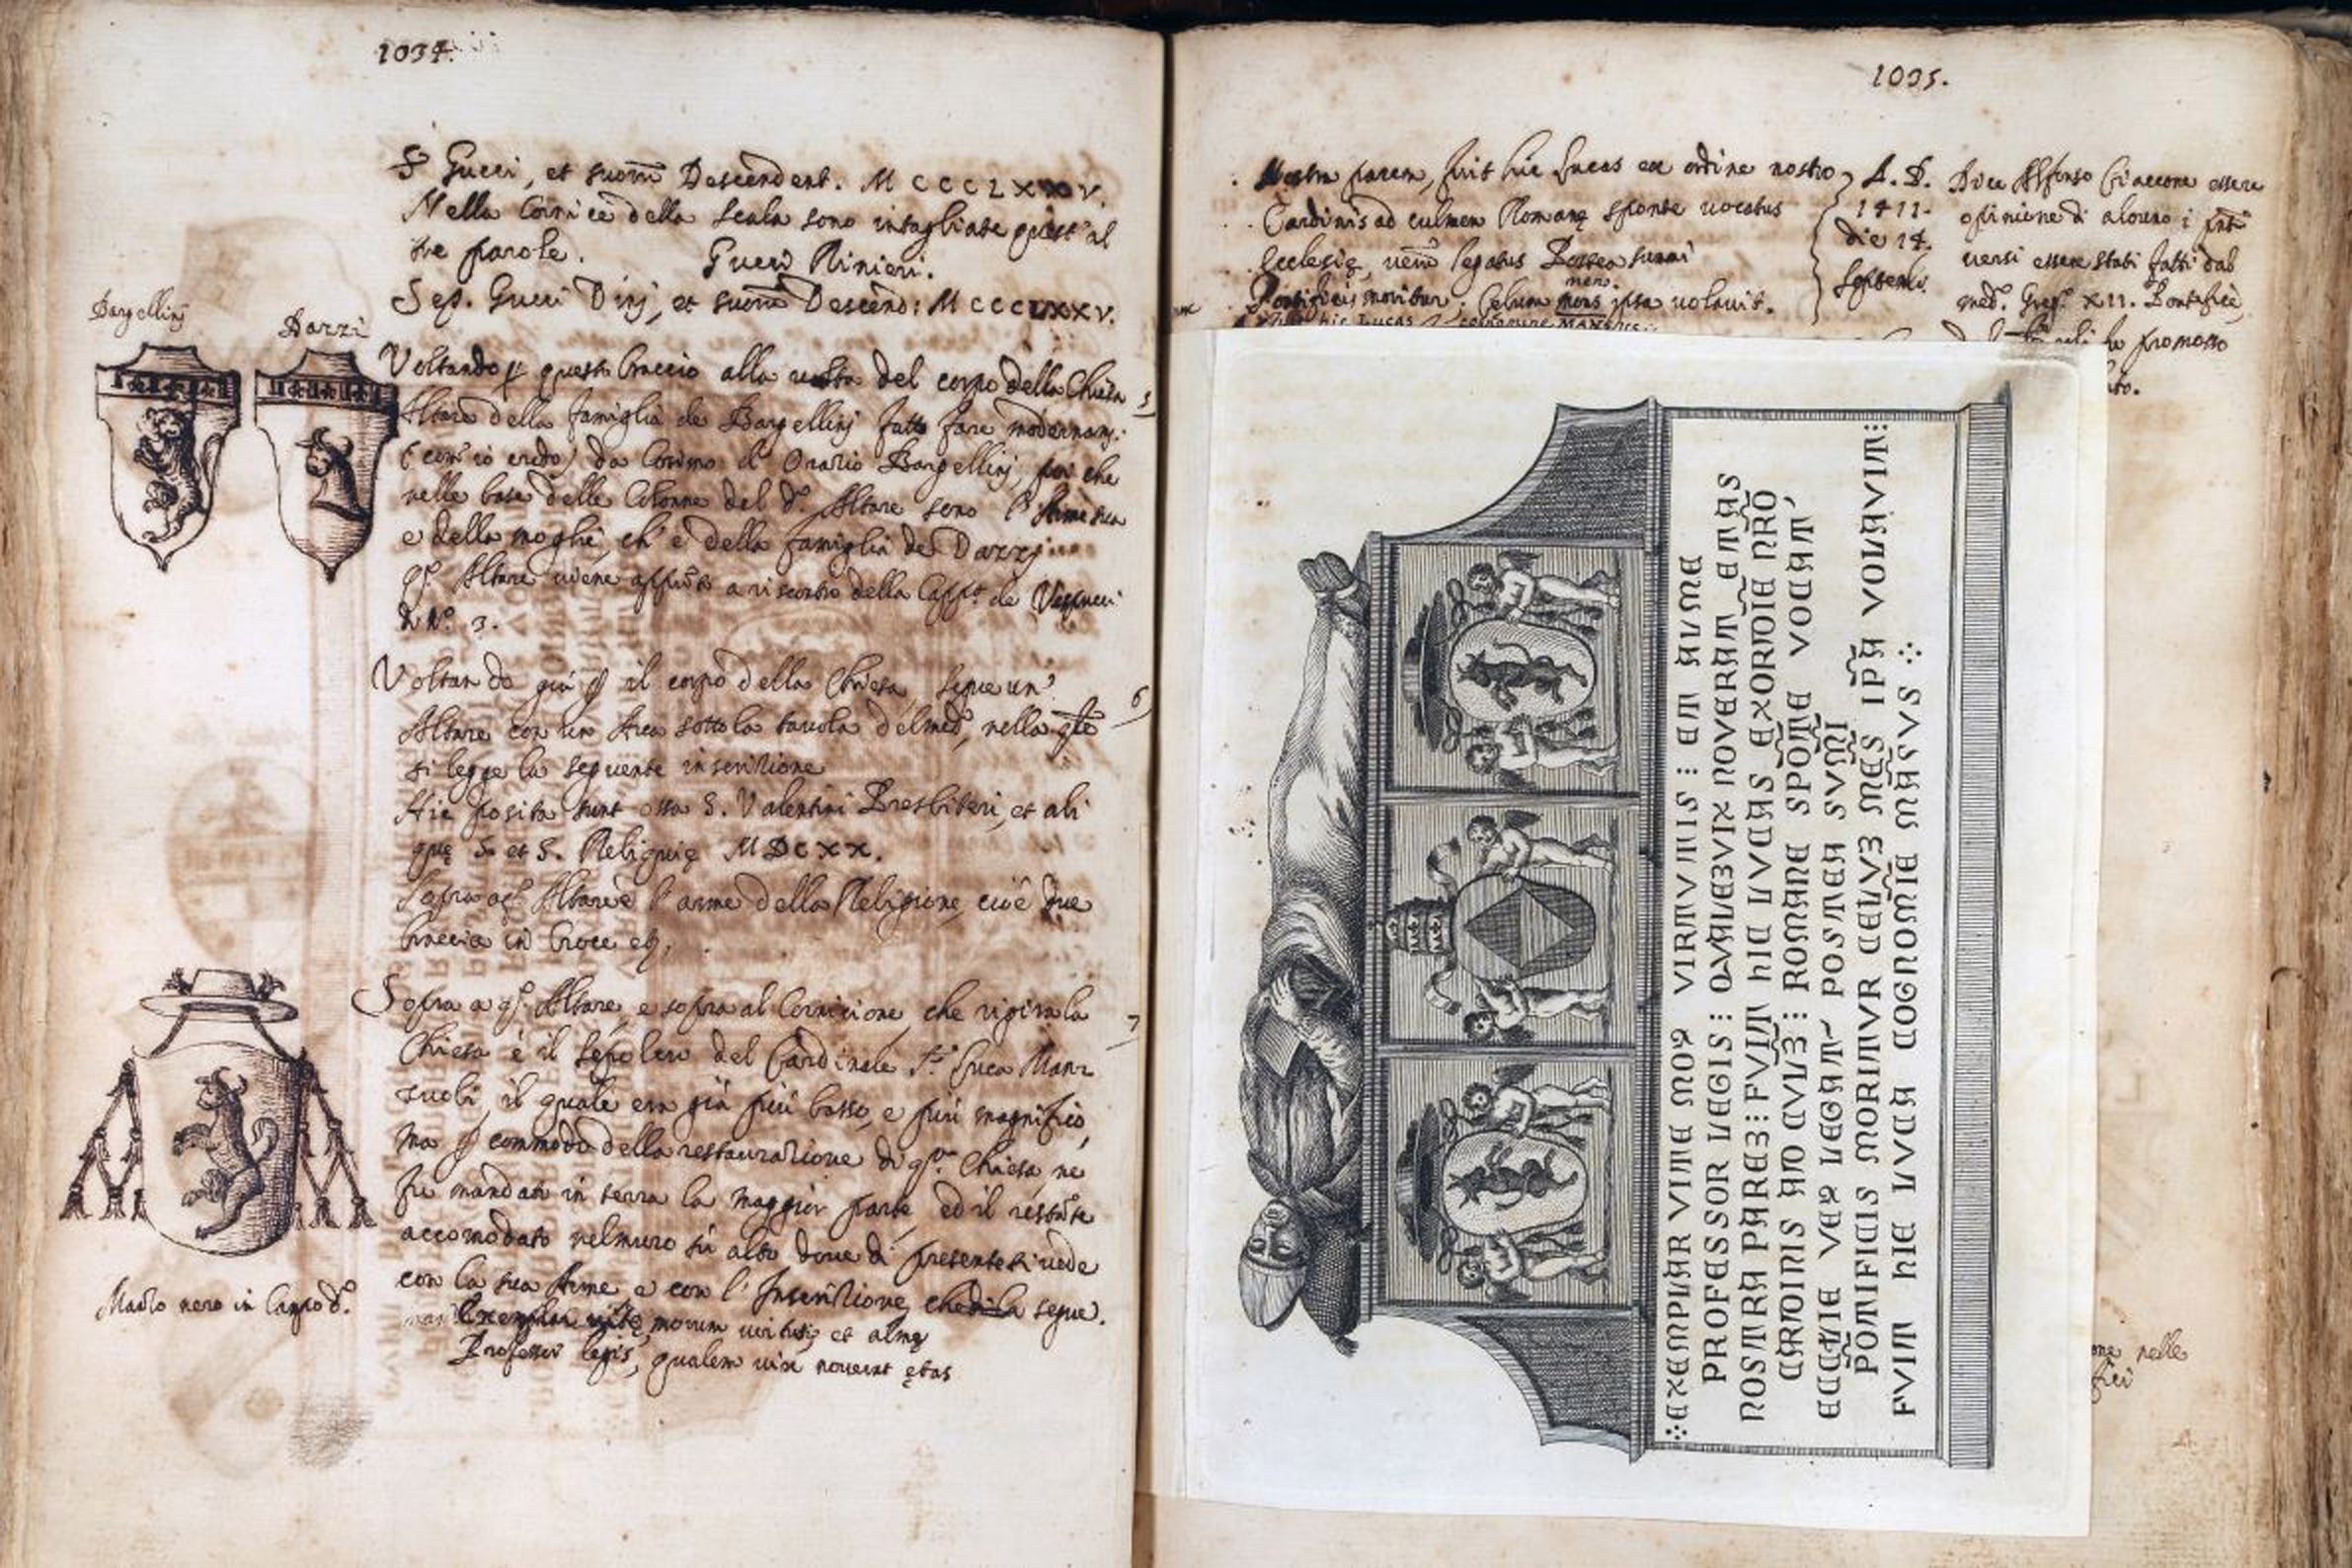 1034.
S. Gucci, et suorū Descendent. MCCCLXXXV.
Nella Cornice della scala sono intagliate quest'al
tre parole. Gucci Rinieri.
Sep. Gucci Dinj, et suorū Descend: MCCCLXXXV.
Bargellinj
Darzi
Voltando p questo braccio alla volta del corpo della Chiesa 5
Altare della famiglia de Bargellinj fatto fare modernamj:
(com' io credo) da Cosimo d' Orazio Bargellinj, poi che
nelle base delle Colonne del d.º Altare sono l'Arme sua
e della moglie, ch' è della famiglia de Darzj
q.º Altare viene appūto a riscontro della Capp.ª de Vespucci
di N.º 3.
Voltando giù p il corpo della Chiesa, segue un' 6
Altare con un Arca sotto la tavola del med.º, nella qle
si legge la seguente inscrizione
Hic posita sunt ossa S. Valentini Presbiteri, et ali
quę S. et S. Reliquię MDCXX.
Sopra a q.º Altare è l'arme della Religione, cioè due
braccia in Croce etc.
Sopra a q.º Altare, e sopra al Cornicione, che rigira la 7
Chiesa è il sepolcro del Cardinale F. Luca Manz
zuoli, il quale era già più basso, e più magnifico,
ma p commodo della restaurazione di q.ª Chiesa, ne
fu mandata in terra la maggior parte, ed il restāte
accomodato nel muro sù alto dove di presente si vede
con la sua Arme, e con l'Inscrizione, che segue.
Exemplar vitę, morum virtutis, et almę
Professor legis, qualem vix noverat ętas
Manzo nero in Campo d.º
1035.
Nostra parem, fuit hic Lucas ex ordine nostro
Cardinis ad culmen Romanę sponte vocatus
Ecclesię, verū legatus Postea summi
Pontificis moritur; Celum mens ipsa volavit.
mens
hic Lucas cognomine MANSUS
A. D.
1411.
die 14.
Septemb.
Dice Alfonso Ciaccone essere
opinione di alcuno i pnti
versi essere stati fatti dal
med.º Greg.º XII. Pontefice,
ho promosso
ato.
EXEMPLAR VITE MOꝜ VIRTVTIS : ET ALME
PROFESSOR LEGIS : QVALEƷ VIX NOVERAT ETAS
NOSTRA PAREƷ : FVIT HIC LVCAS EXORDIE NRŌ
CARDINIS AD CVLMƷ : ROMANE SPOTE VOCAT'
ECCTIE VEꝜ LEGAT' POSTEA SVMI
POTIFICIS MORITVR CELVƷ MES IPA VOLAVIT:
FVIT HIC LVCA COGNOMIE MASVS
one nelle